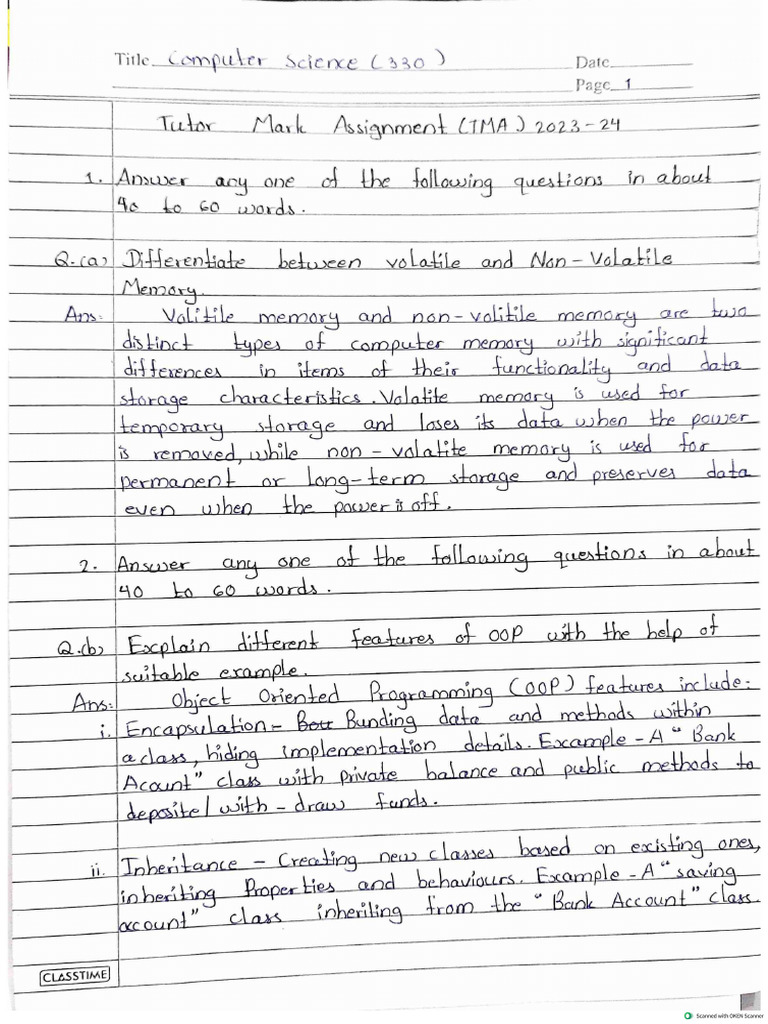 Title Computer Science (330) Date
Page 1
Tutor Mark Assignment (TMA) 2023-24
1. Answer any one of the following questions in about
40 to 60 words.
Q.(a) Differentiate between volatile and Non-Volatile
Memory.
Ans: Volitile memory and non-volitile memory are two
distinct types of computer memory with significant
differences in items of their functionality and data
storage characteristics. Volatite memory is used for
temporary storage and loses its data when the power
is removed, while non-volatite memory is used for
permanent or long-term storage and preserves data
even when the power is off.
2. Answer any one of the following questions in about
40 to 60 words.
Q.(b) Explain different features of OOP with the help of
suitable example.
Ans: Object Oriented Programming (OOP) features include:
i. Encapsulation - Bunding data and methods within
a class, hiding implementation details. Example - A "Bank
Acount" class with private balance and public methods to
deposite/with-draw funds.
ii. Inheritance - Creating new classes based on existing ones,
inheriting Properties and behaviours. Example - A "saving
account" class inheriting from the "Bank Account" class.
CLASSTIME
Scanned with OKEN Scanner